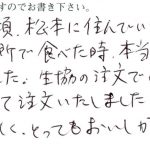 すのでお書き下さい。
頃、松本に住んでい
所で食べた時、本当
た。生協の注文で
て注文いたしました
しく、とってもおいしか